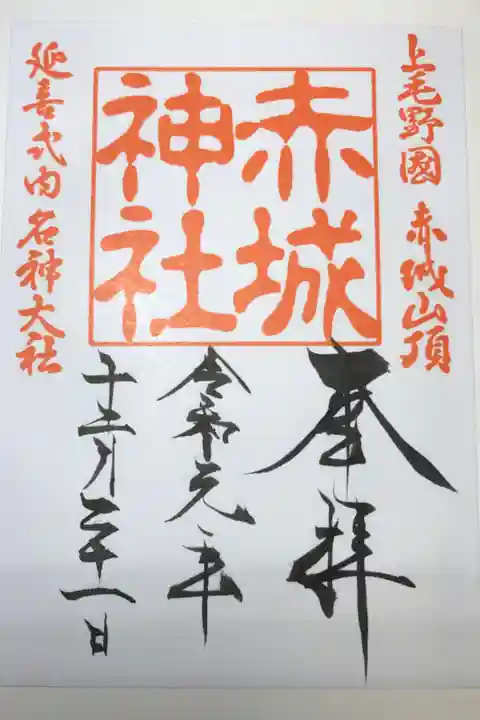 上毛野國 赤城山頂
赤城
神社
延喜式内名神大社
奉拝
令和元年
十二月二十一日